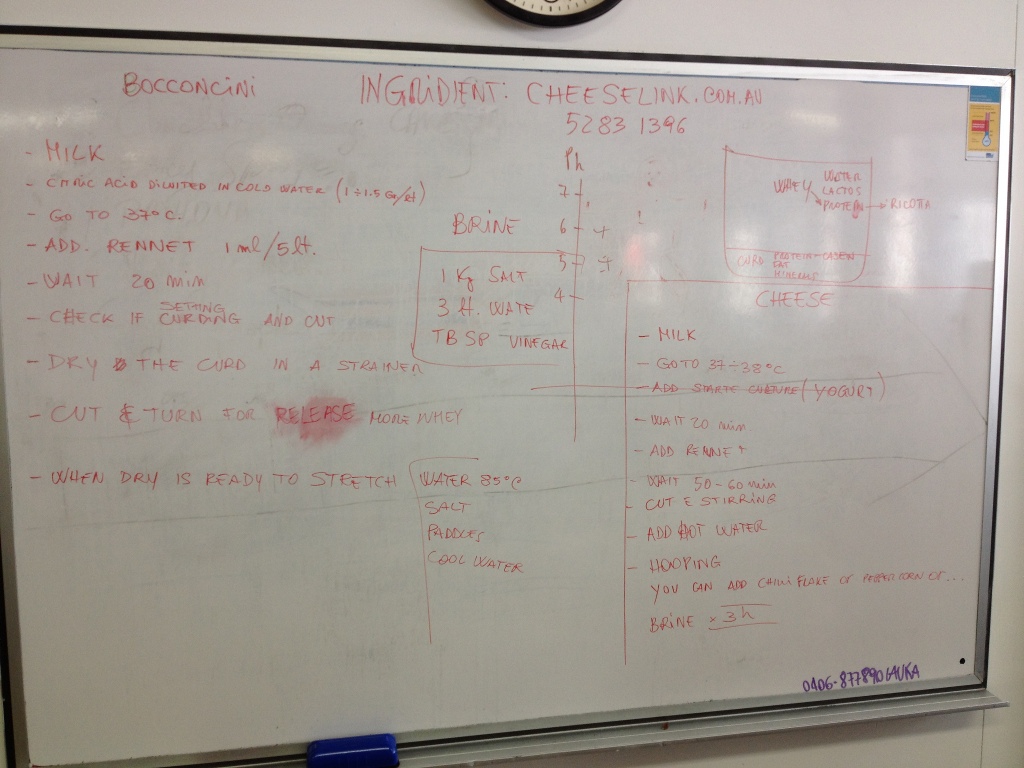 BOCCONCINI
INGRIDIENT: CHEESELINK.COM.AU
5283 1396
- MILK
- CITRIC ACID DILUITED IN COLD WATER (1÷1.5 Gr/lt)
- GO TO 37°C.
- ADD. RENNET 1 ml/5 lt.
- WAIT 20 min
SETTING
- CHECK IF CURDING AND CUT
- DRY THE CURD IN A STRAINER
- CUT & TURN FOR RELEASE MORE WHEY
- WHEN DRY IS READY TO STRETCH
WATER 85°C
SALT
PADDLES
COOL WATER
BRINE
1 Kg SALT
3 lt. WATE
TBSP VINEGAR
Ph
7
6 +
5 +
4
WHEY
WATER
LACTOS
PROTEIN → RICOTTA
CURD
PROTEIN - CASEIN
FAT
MINERALS
CHEESE
- MILK
- GO TO 37÷38°C
- ADD STARTE CULTURE (YOGURT)
- WAIT 20 min
- ADD RENNET
- WAIT 50-60 min
- CUT E STIRRING
- ADD HOT WATER
- HOOPING
YOU CAN ADD CHILLI FLAKE OR PEPPERCORN OR...
BRINE × 3h
0406-877890 LAURA